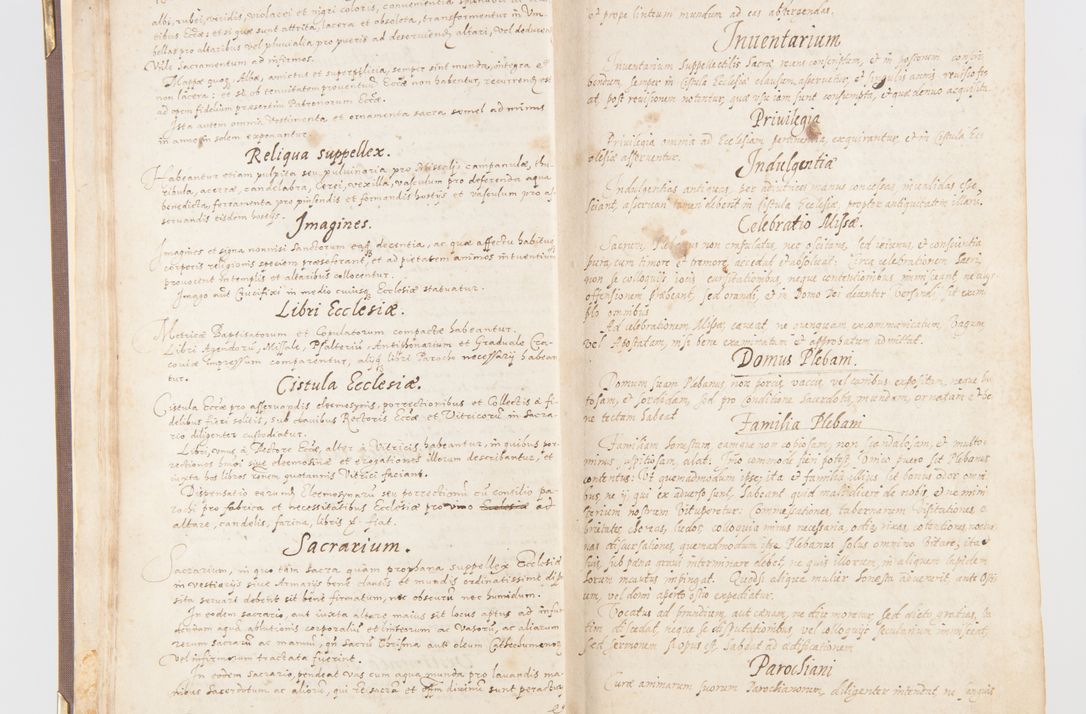 albi, rubei, viridis, violacei et nigri coloris, convenientia
tibus Eccłæ et si quæ sunt attrita, lacera et obsoleta, transformentur in Um,
bellas pro altaribus vel pluvialia pro pueris ad deserviendũ altari, vel deducen
Vble Sacramentum ad infirmos.
Mappæ quoq, Albæ, amictus et superpellicia, semper sint munda, integra et
non lacera: et si ob tenuitatem proventuũ Eccłæ non habentur, recurrendũ est
ad opem fidelium præsertim Patronorum Eccłæ.
Ista autem omnia Vestimenta et ornamenta sacra semel ad minus
in anno in solem exponantur.
Reliqua suppellex.
Habeantur etiam pulpita seu pulvinaria pro Missali, campanulæ, thu,
ribula, acerræ, candelabra, Cerei, vexilla, vasculum pro deferenda aqua
benedicta, ferramenta pro pinsendis et formandis hostijs et vasculum pro as
servandis eisdem hostijs.
Imagines.
Imagines et signa nonnisi Sanctorum eaq decentia, ac quæ affectu habitu
corporis religionis speciem præseferant, et ad pietatem animos intuentium
provocent in templis et altaribus collocentur.
Imago aut Crucifixi in medio cuiusq Ecclesiæ statuatur.
Libri Ecclesiæ.
Metricæ Baptisatorum et Copulatorum compactæ habeantur.
Libri Agendorũ, Missale, Psalteriũ Antiphonarium et Graduale Cra,
coviæ Impressum comparentur, alijq libri Parocho necessarij habean
tur.
Cistula Ecclesiæ.
Cistula Eccłæ pro asservandis eleemosynis, porrectionibus et Collectis a fi,
delibus fieri solitis, sub clavibus Rectoris Eccłæ et Vitricorũ in Sacra,
rio diligenter custodiatur.
Libri, unus a Rectore Eccłæ, alter a Vitricis habeantur, in quibus por,
rectiones huiõi sive eleemosinæ et erogationes illorum describantur, et
iuxta hos libros rẽnem quotannis Vitrici faciant.
Dispensatio earundẽ Eleemosynarũ seu porrectionũ cũ consilio pa,
rochi pro fabrica et necessitatibus Ecclesiæ pro vino Ecclesiæ ad
altare, candelis, farina, libris &. fiat.
Sacrarium.
Sacrarium, in quo tam sacra quam prophana suppellex Ecclesiæ
in vestiarijs sive Armarijs bene clausis et mundis ordinatissime dis
sita servari debent sit bene firmatum, nec obscurũ nec humidum.
In eodem sacrario, aut iuxta altare maius sit locus aptus ad infun
dendam aquã ablutionis corporaliũ et linteorum ac vasorũ, ac aliarum
rerum sacrarũ ac manuũ, qñ sacrũ Chrisma aut oleum Cathecumenorũ
vel infirmorum tractata fuerint.
In eodem Sacrario, pendeat vas cum aqua munda pro lavandis ma,
nibus Sacerdotum ac aliorũ, qui rẽ sacrã et offm divinũ sunt peracturi
& prope linteum mundum ad eas abstergendas.
Inventarium
Inventarium Suppellectilis Sacræ ream conscriptam, et in posterum conscri,
bendum, semper in Cistula Ecclesiæ clausum asservetur, et singulis annis revisio fi,
at, post revisionem notentur, quæ usu iam sunt consumpta, et quæ denuo acquisita.
Privilegia
Privilegia omnia ad Ecclesiam pertinentia, exquirantur, et in Cistula Ecc
clesiæ asserventur.
Indulgentiæ
Indulgentias antiquas, per adiutrices manus concessas, invalidas esse
sciant, asservari tamen debent in Cistula Ecclesiæ propter antiquitatem illaru.
Celebratio Missæ.
Sacrum, Plebanus non crapulatus, nec oscitans, sed ieiunus, et conscientia
pura, cum timore et tremore, accedat et absolvat: Circa celebrationem Sacri,
non se colloquijs iocis cavillationibus, neque contentionibus immisceant, ne cuiq
offensionem præbeant, sed orandi, et in Domo Dei decenter versandi, sit exem
plo omnibus.
Ad celebrationem Missæ, caveat, ne quenquam excommunicatum, Vagum
vel Apostatam, nisi bene examinatum et approbatum admittat.
Domus Plebani.
Domum suam Plebanus non porcis, vaccis, vel canibus expositam, neque lu
tosam, et sordidam, sed pro Conditione Sacerdotis, mundam, ornatam et be,
ne tectam habeat.
Familia Plebani
Familiam honestam, eamque non copiosam, non scandalosam, et multo
minus suspitiosam, alat. Imo commode si fieri potest Unico puero sit Plebanus
contentus: Ut quemadmodum ipse, ita et familia illius sit bonus odor omni
bus, ne ij qui ex adverso sunt, habeant quid mali dicere de nobis et ne mini
sterium nostrum vituperetur. Commessationes, tabernarum Visitationes, e
brietates, choreas, ludos, colloquia minus necessaria, ortas rixas, contentiones, noctur
nas discursationes, quemadmodum ipse Plebanus solus omnino vitare, ita
suis, sub pœna gravi interminare debet, ne quis illorum, in aliquem lapidem
horum incautus impingat. Quodsi aliqua mulier honesta advenerit, ante Osti
um, vel domi aperto ostio expediatur.
Vocatus ad prandium, aut cænam, ne diu moretur, sed dictis gratijs, sta
tim discedat, neque se disputationibus, vel colloquijs secularium immisceat,
sed sermonem si opus est habeat ad ædificationem.
Parochiani
Curæ animarum suorum Parochianorum, diligenter intendat, ne sanguis